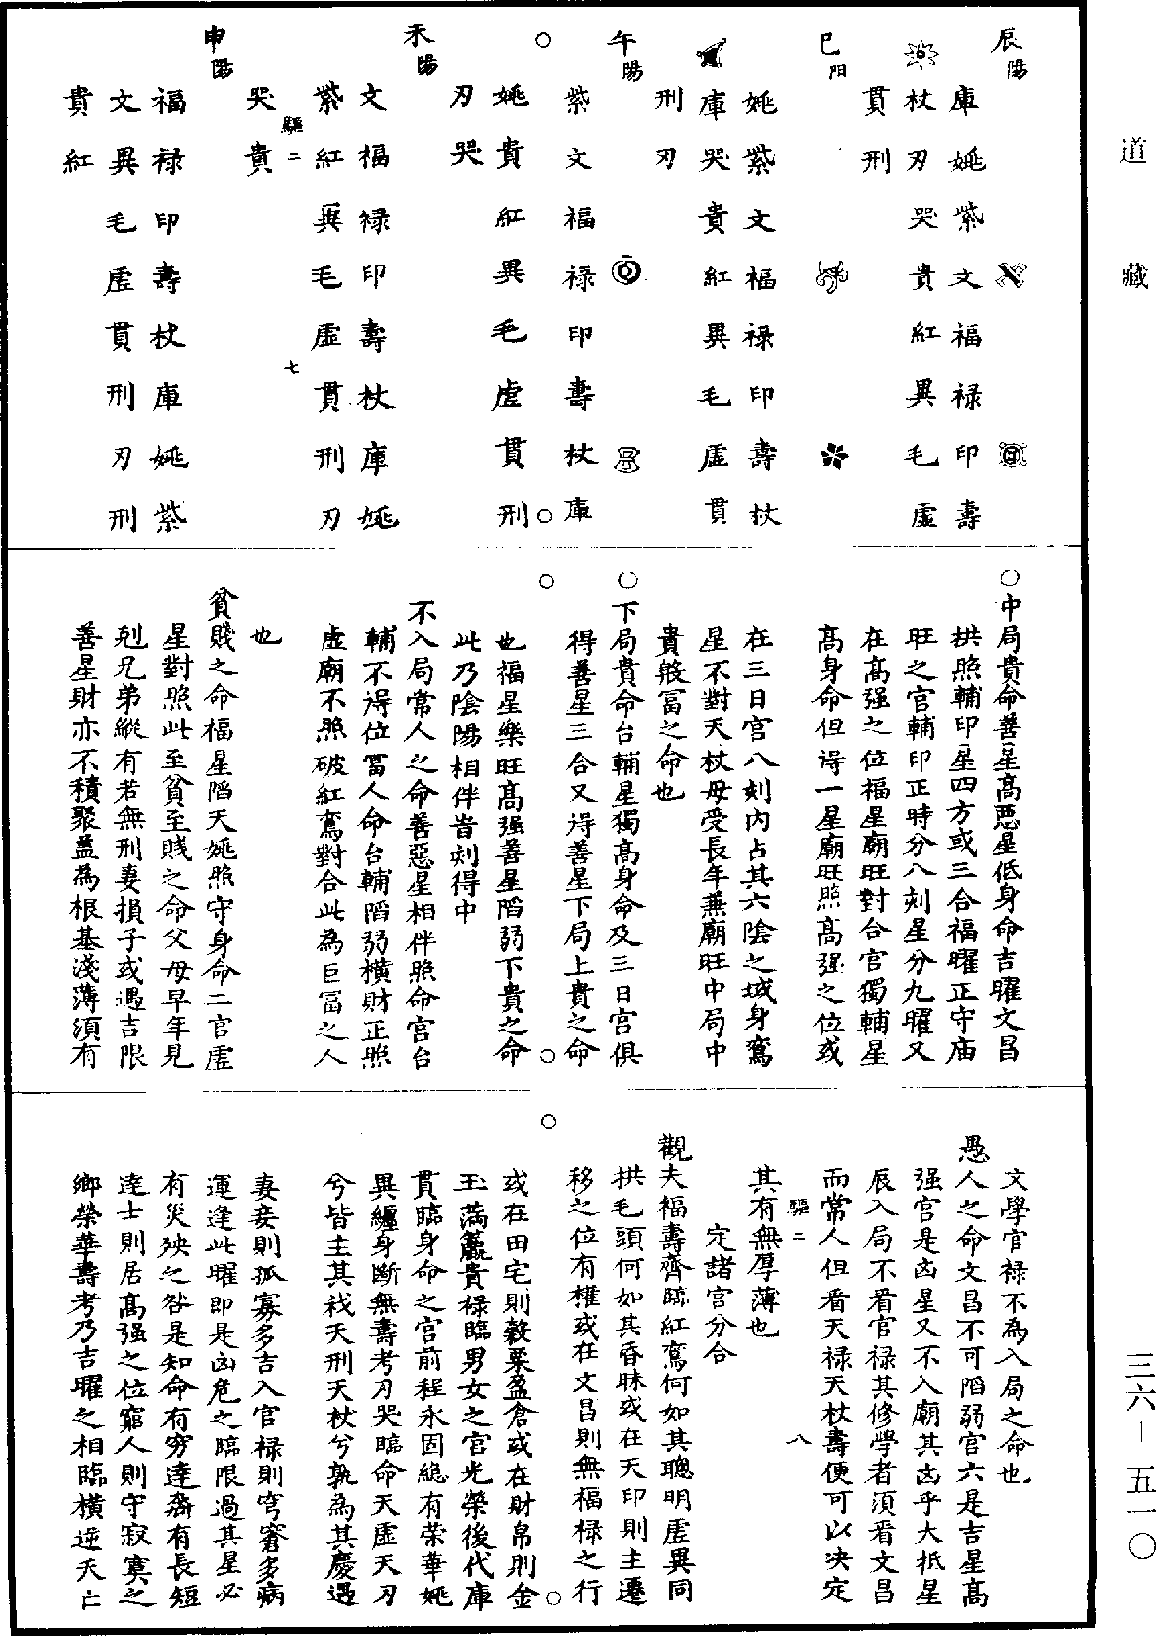 道藏
三六—五一〇
辰陽
庫姚紫文福禄印壽
杖刃哭貴紅異毛虛
貫刑
巳阳
姚紫文福禄印壽杖
庫哭貴紅異毛虛貫
刑刃
午陽
紫文福禄印壽杖庫
姚貴紅異毛虛貫刑
刃哭
未陽
文福禄印壽杖庫姚
紫紅異毛虛貫刑刃
驅二 七
哭貴
申陽
福禄印壽杖庫姚紫
文異毛虛貫刑刃刑
貴紅
○中局貴命善星高惡星低身命吉曜文昌
拱照輔印星四方或三合福曜正守庙
旺之官輔印正時分八刻星分九曜又
在高强之位福星廟旺對合官獨輔星
高身命但得一星廟旺照高强之位或
在三日宫八刻内占其六陰之域身鸞
星不對天杖毋受長年兼廟旺中局中
貴般冨之命也
○下局貴命台輔星獨高身命及三日宫俱
得善星三合又得善星下局上貴之命
也福星樂旺高强善星陷弱下貴之命
此乃陰陽相伴皆刻得中
不入局常人之命善惡星相伴照命宫台
輔不得位冨人命台輔陷弱横財正照
虛廟不照破紅鸞對合此為巨冨之人
也
貧賤之命福星陷天姚照守身命二官虛
星對照此至貧至賤之命父母早年見
剋兄弟縱有若無刑妻損子或遇吉限
善星財亦不積聚盖為根基淺薄須有
文學官禄不為入局之命也
愚人之命文昌不可陷弱官六是吉星高
强官是凶星又不入廟其凶乎大抵星
辰入局不看官禄其修學者須看文昌
而常人但看天禄天杖壽便可以决定
驅二 八
其有無厚薄也
定諸宫分合
觀夫福壽齊臨紅鸞何如其聰明虛異同
拱毛頭何如其昏昧或在天印則主遷
移之位有權或在文昌則無福禄之行
或在田宅則穀粟盈倉或在財帛則金
玉滿籯貴禄臨男女之官光榮後代庫
貫臨身命之官前程永固總有荣華姚
異纏身斷無壽考刃哭臨命天虛天刃
兮皆主其找天刑天杖兮孰為其慶遇
妻妾則孤寡多吉入官禄則穹窘多病
運逢此曜即是凶危之臨限過其星必
有災殃之咎是知命有穷達裔有長短
逹士則居高强之位窮人則守寂寞之
鄉榮華壽考乃吉曜之相臨橫逆天亡